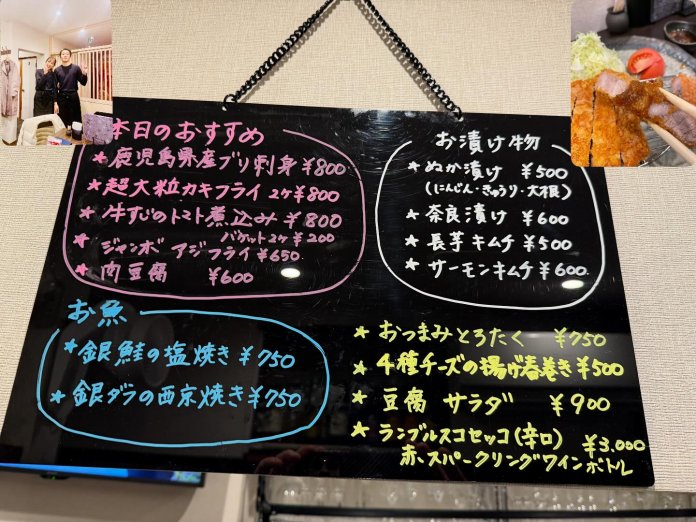 本日のおすすめ
★鹿児島県産ブリ刺身 ¥800
★超大粒カキフライ 2ケ ¥800
★牛すじのトマト煮込み ¥800
バケット2ケ ¥200
★ジャンボ アジフライ ¥650
★肉豆腐 ¥600
お漬け物
★ぬか漬け ¥500
(にんじん・きゅうり・大根)
★奈良漬け ¥600
★長芋キムチ ¥500
★サーモンキムチ ¥600
お魚
★銀鮭の塩焼き ¥750
★銀ダラの西京焼き ¥750
★おつまみとろたく ¥750
★4種チーズの揚げ春巻き ¥500
★豆腐 サラダ ¥900
★ランブルスコセッコ(辛口) ¥3,000
赤、スパークリングワインボトル